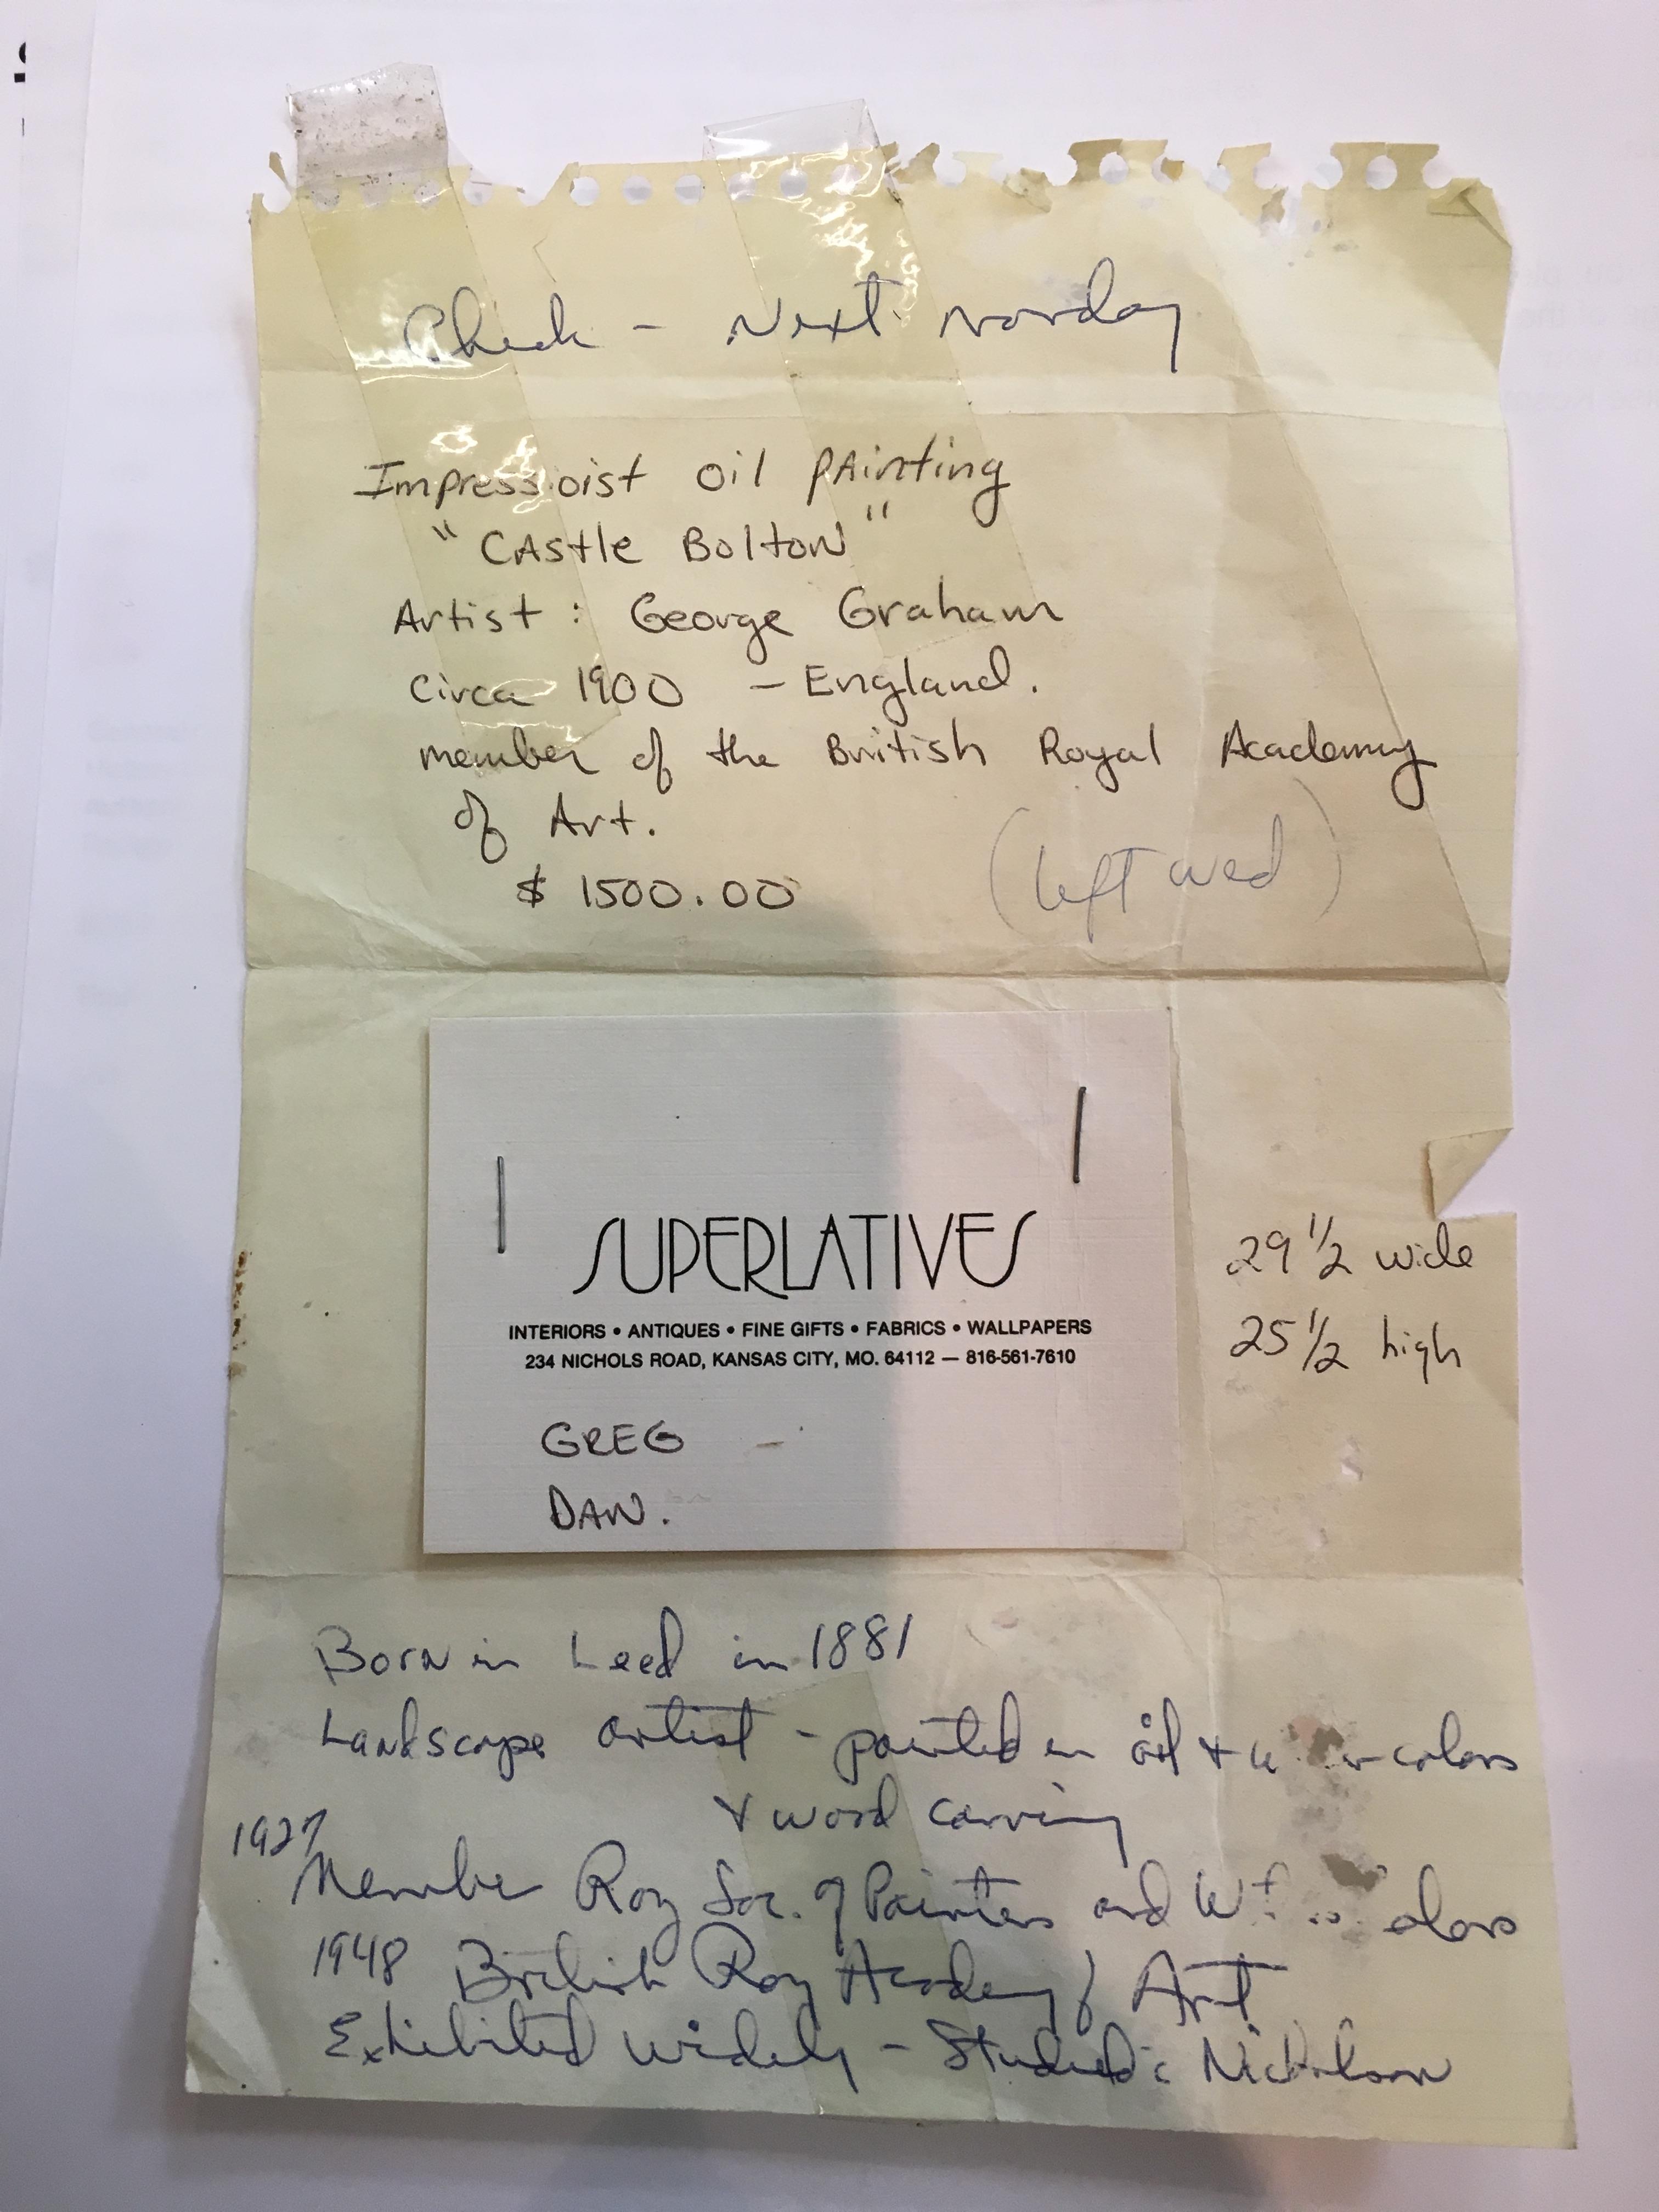 Check - Next Monday
Impressoist oil painting
"Castle Bolton"
Artist: George Graham
circa 1900 - England.
member of the British Royal Academy
of Art.
$1500.00
(left wed)
SUPERLATIVES
INTERIORS • ANTIQUES • FINE GIFTS • FABRICS • WALLPAPERS
234 NICHOLS ROAD, KANSAS CITY, MO. 64112 — 816-561-7610
GREG -
DAN.
29 1/2 wide
25 1/2 high
Born in Leed in 1881
Landscape artist - painted in oil + colors
+ wood carving
1927
Member Roy Soc. of Painters and
1948 British Roy Academy of Art
Exhibited widely - Studied c Nicholson